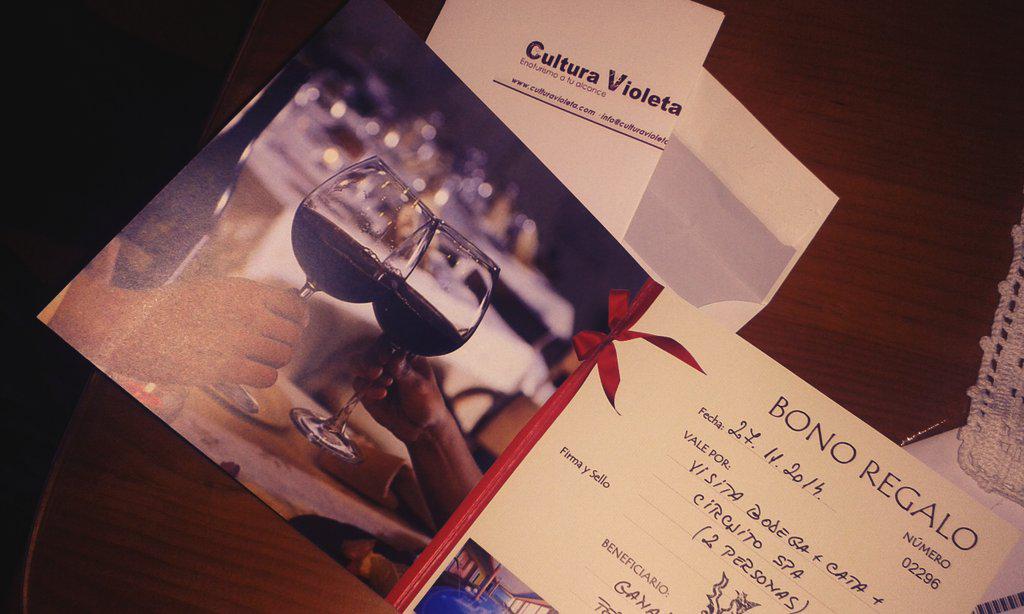 Cultura Violeta
Enoturismo a tu alcance
www.culturavioleta.com - info@culturavioleta
BONO REGALO
NÚMERO
02296
Fecha: 27.11.2014.
VALE POR:
VISITA BODEGA + CATA +
CIRCUITO SPA
(2 PERSONAS)
Firma y Sello
BENEFICIARIO: